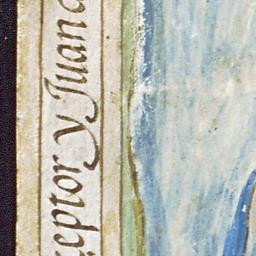 ceptor y Juan